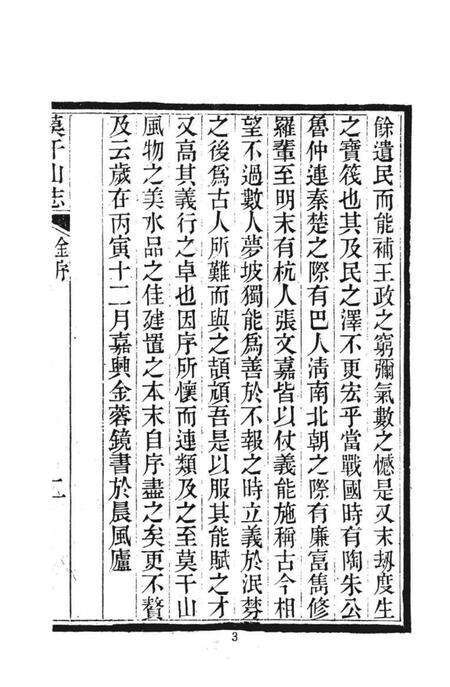 餘遺民而能補王政之窮彌氣數之憾是又末刼度生
之寶筏也其及民之澤不更宏乎當戰國時有陶朱公
魯仲連秦楚之際有巴人淸南北朝之際有廉富雋修
羅輩至明末有杭人張文嘉皆以仗義能施稱古今相
望不過數人夢坡獨能爲善於不報之時立義於泯棼
之後爲古人所難而與之頡頏吾是以服其能賦之才
又高其義行之卓也因序所懷而連類及之至莫干山
風物之美水品之佳建置之本末自序盡之矣更不贅
及云歲在丙寅十二月嘉興金蓉鏡書於晨風廬
莫干山志
金序
二
3